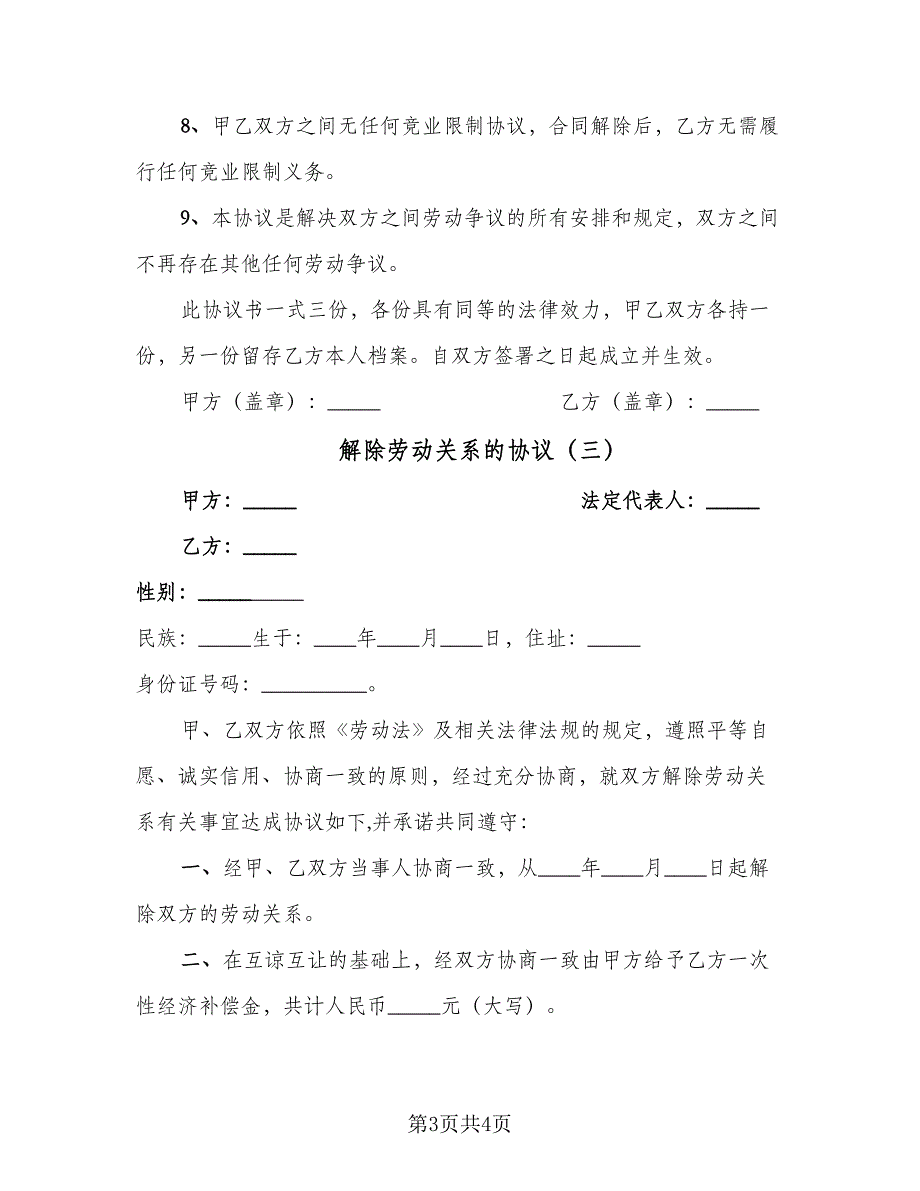 8、甲乙双方之间无任何竞业限制协议，合同解除后，乙方无需履
行任何竞业限制义务。
9、本协议是解决双方之间劳动争议的所有安排和规定，双方之间
不再存在其他任何劳动争议。
此协议书一式三份，各份具有同等的法律效力，甲乙双方各持一
份，另一份留存乙方本人档案。自双方签署之日起成立并生效。
甲方（盖章）：_____ 乙方（盖章）：_____
解除劳动关系的协议（三）
甲方：_____ 法定代表人：_____
乙方：_____
性别：__________
民族：_____生于：____年____月____日，住址：_____
身份证号码：__________。
甲、乙双方依照《劳动法》及相关法律法规的规定，遵照平等自
愿、诚实信用、协商一致的原则，经过充分协商，就双方解除劳动关
系有关事宜达成协议如下,并承诺共同遵守：
一、经甲、乙双方当事人协商一致，从____年____月____日起解
除双方的劳动关系。
二、在互谅互让的基础上，经双方协商一致由甲方给予乙方一次
性经济补偿金，共计人民币_____元（大写）。
第3页共4页